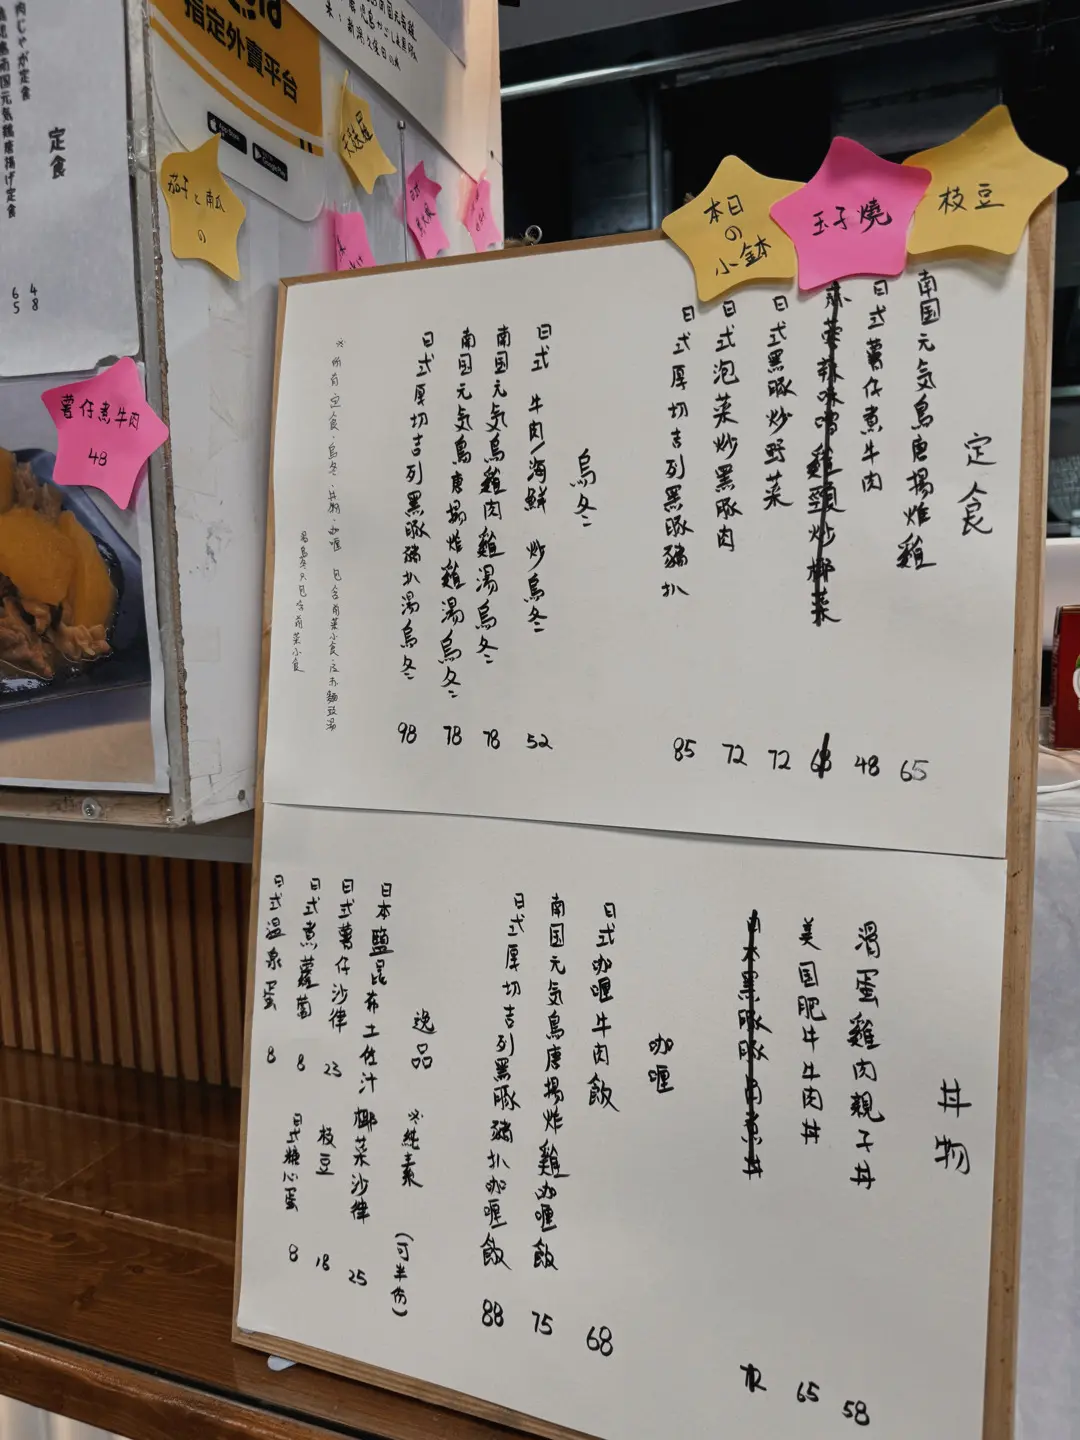 定食
南国元気鳥唐揚炸雞 65
日式薯仔煮牛肉 48
日式黑豚炒野菜 72
日式泡菜炒黑豚肉 72
日式厚切吉列黑豚豬扒 85
烏冬
日式 牛肉/海鮮 炒烏冬 52
南国元気烏雞肉雞湯烏冬 78
南国元気鳥唐揚炸雞湯烏冬 78
日式厚切吉列黑豚豬扒湯烏冬 98
丼物
滑蛋雞肉親子丼 58
美国肥牛牛肉丼 65
咖喱
日式咖喱牛肉飯 68
南国元気鳥唐揚炸雞咖喱飯 75
日式厚切吉列黑豚豬扒咖喱飯 88
逸品 ※純素 (可半份)
日本鹽昆布土佐汁椰菜沙律 25
日式薯仔沙律 23
枝豆 18
日式煮蘿蔔 8
日式糖心蛋 8
日式温泉蛋 8
本日の小鉢
玉子燒
枝豆
薯仔煮牛肉
48
茄子と南瓜の
天麩羅
指定外賣平台
App Store
Google Play
定食
肉じゃが定食 48
南国元気鶏唐揚げ定食 65